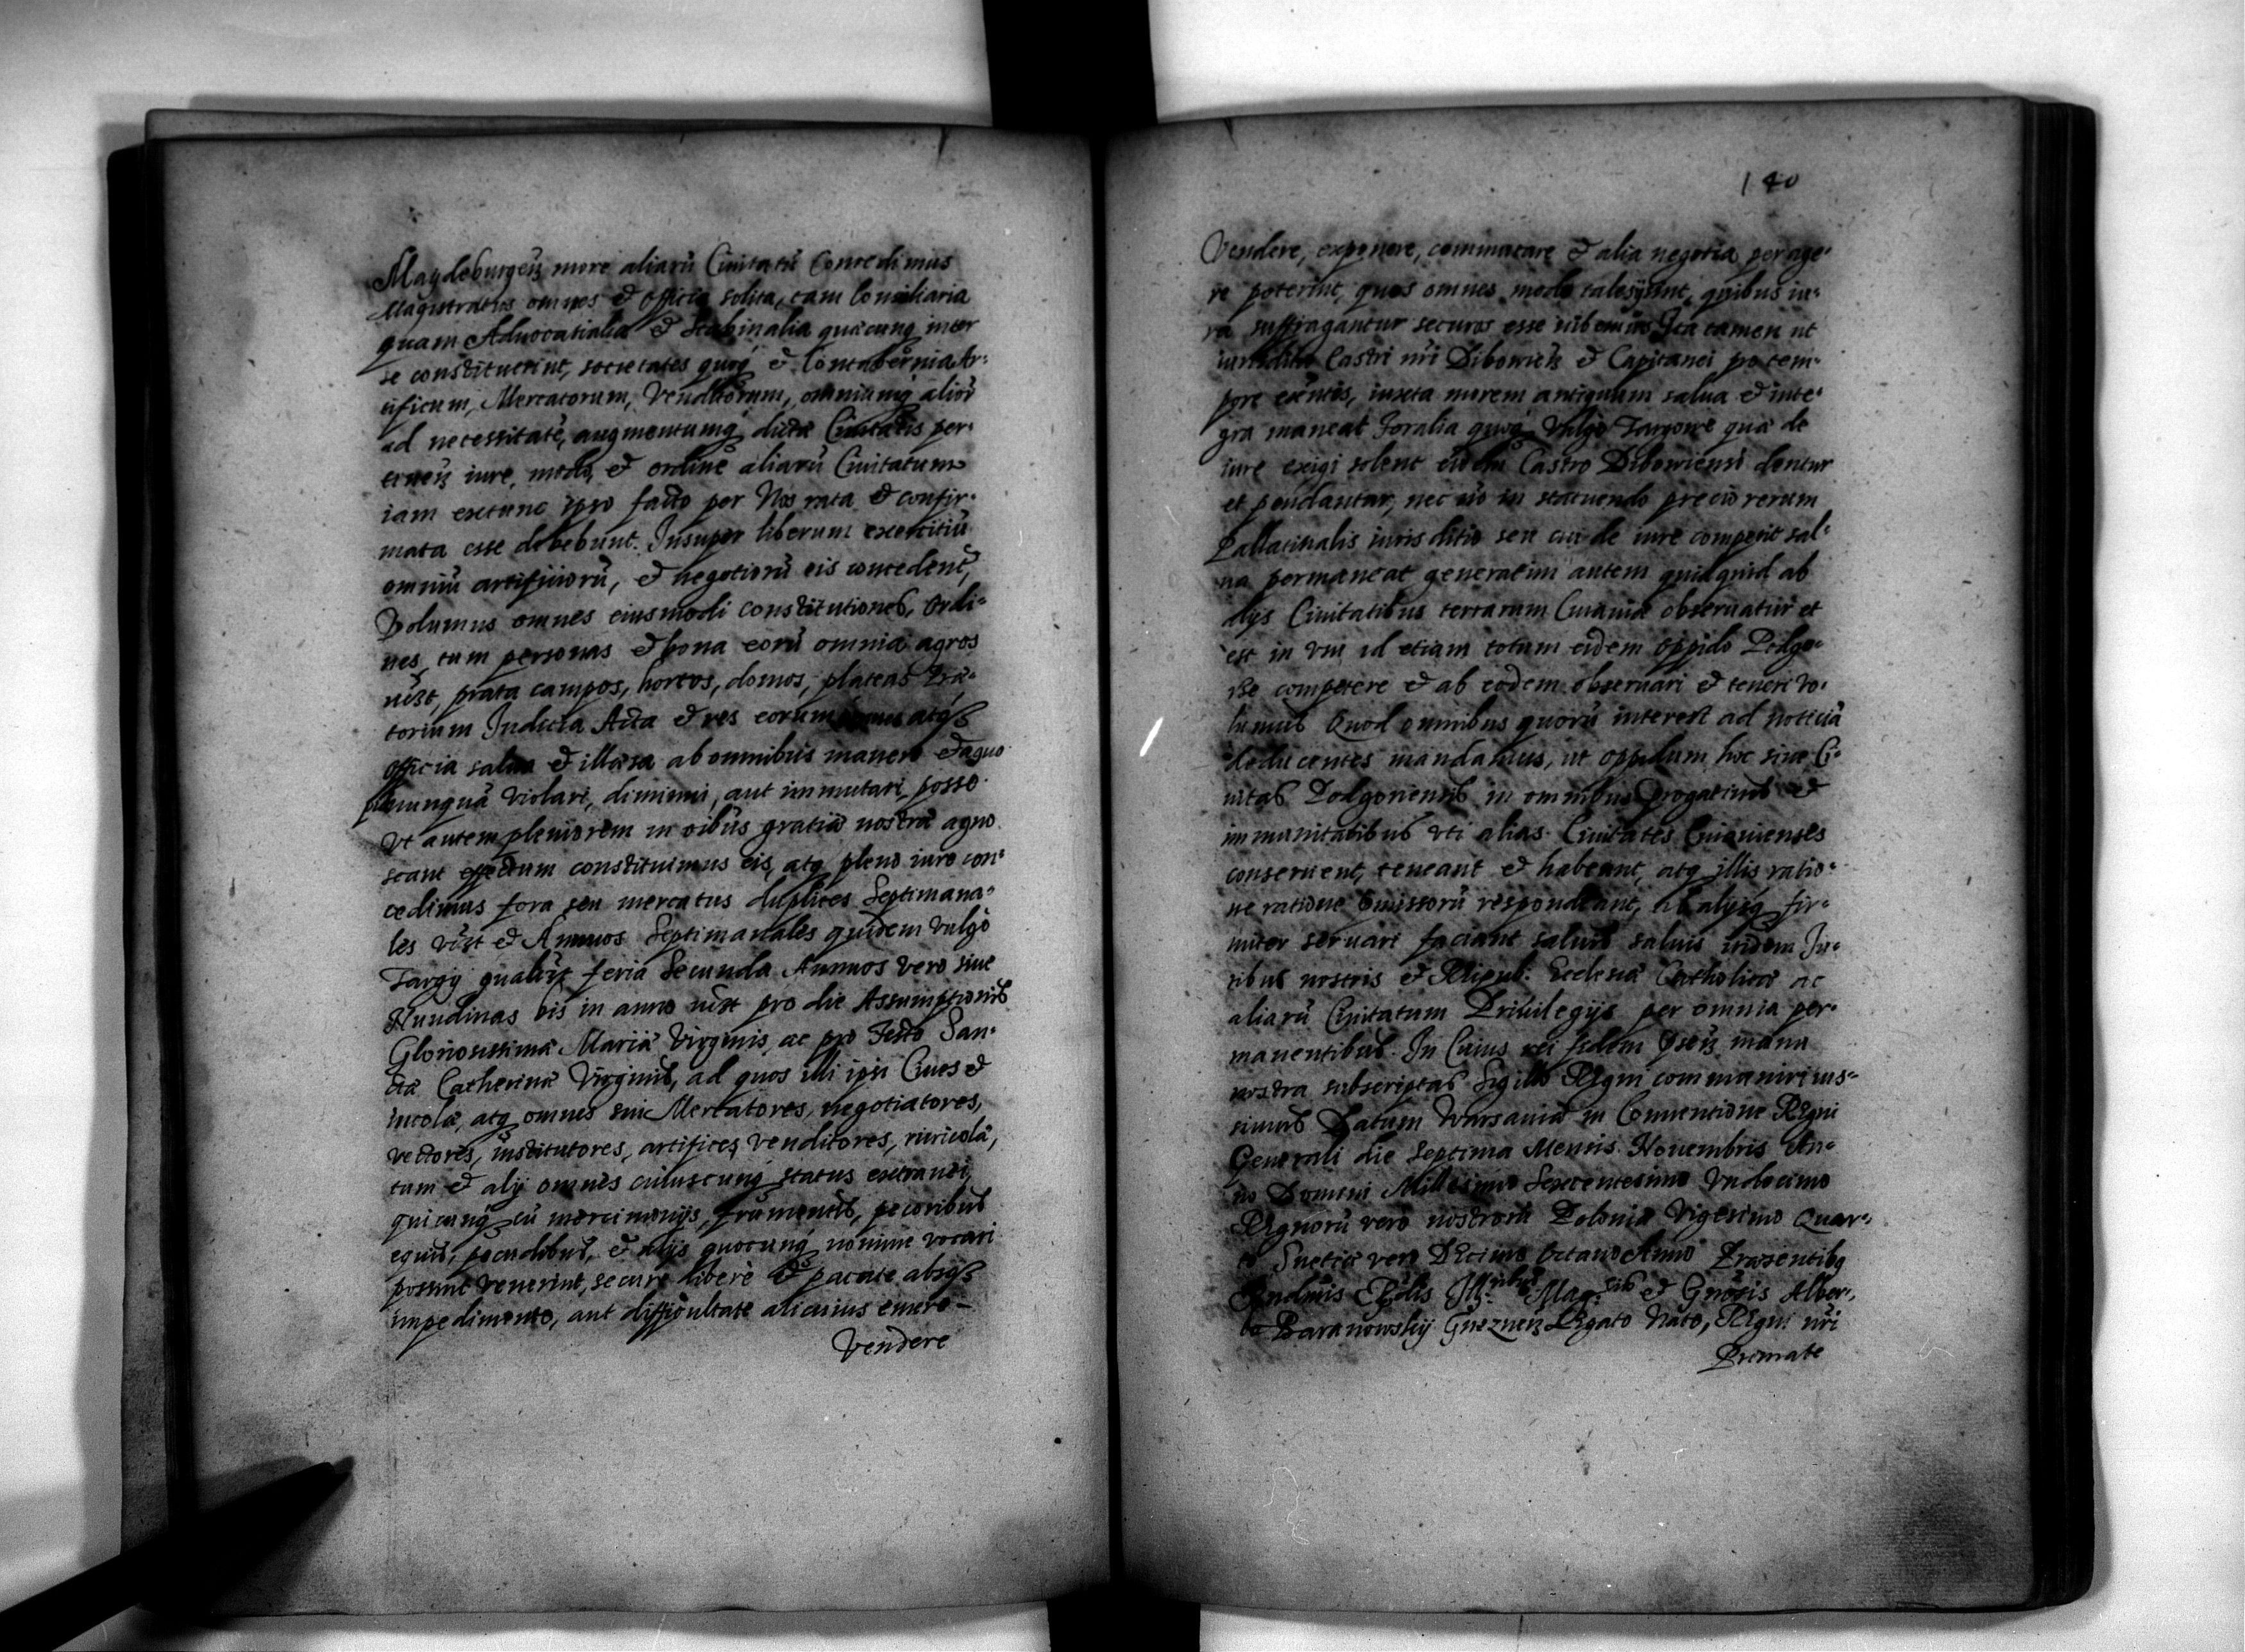 Magdeburgen̄ more aliarū Ciuitatū Concedimus
Magistratus omnes et officia solita, tam Consiliaria
quam Aduocatialia et Scabinalia quæcunq̨ inter
se constituerint, societates quoq̨ et Contubernia Ar-
tificum, Mercatorum, Venditorum, omniumq̨ aliorū
ad necessitatē, augmentumq̨ dictæ Ciuitatis per-
tinen̄ iure, modo, et ordine aliarū Ciuitatum
iam extunc ipso facto per Nos rata et confir-
mata esse debebunt. Insuper liberum exercitiū
omniū artificiorū, et negotiorū eis concedent̄,
Volumus omnes eiusmodi constitutiones, ordi-
nes, tum personas et bona eorū omnia agros
uid̄t, prata campos, hortos, domos, plateas Præ-
torium Iudicia Acta et res eorum atq̨
officia salua et illæsa ab omnibus manere et a quo
piam nunquā violari, diminui, aut immutari posse.
Vt autem pleniorem in oībus gratiæ nostræ agno
scant effectum constituimus eis, atq̨ pleno iure con-
cedimus fora seu mercatus duplices Septimana-
les vid̄t et Annuos Septimanales quidem vulgo
Targij qualibet feria Secunda Annuos vero siue
Nundinas bis in anno uid̄t pro die Assumptionis
Gloriosissimæ Mariæ Virginis, ac pro Festo San-
ctæ Catherinæ Virginis, ad quos illi ipsi Ciues et
incolæ, atq̨ omnes sui Mercatores, negotiatores,
vectores, institutores, artifices, venditores, ruricolæ,
tam et alij omnes cuiuscunq̨ status extranei,
quicunq̨ cū mercimonijs, frumentis, pecoribus
equis, pecudibus, et alijs quocunq̨ nomine vocari
possint venerint, secure libere et pacate absq̨
impedimento, aut difficultate alicuius emere
Vendere
140
Vendere, exponere, commutare et alia negotia perage-
re poterint, quos omnes modo tales sint, quibus iu-
ra suffragantur securos esse iubemus Ita tamen ut
iurisditio Castri nr̄i Dibouien̄ et Capitanei pro tem-
pore existentis, iuxta morem antiquum salua et inte-
gra maneat Foralia quoq̨ Vulgo Targowe quæ de
iure exigi solent eidem Castro Dibouiensi dentur
et pendantur, nec nō in statuendo precio rerum
Pallatinalis iurisditio seu cui de iure competit sal-
ua permaneat generatim autem quidquid ab
alijs Ciuitatibus terrarum Cuiauiæ obseruatur et
est in vsu id etiam totum eidem oppido Podgo-
rze competere et ab eodem obseruari et teneri vo-
lumus Quod omnibus quorū interest ad noticiā
deducentes mandamus, ut oppidum hoc siue Ci-
uitas Podgoriensis in omnibus progatiuis et
immunitatibus vti alias Ciuitates Cuiauienses
conseruent, teneant et habeant, atq̨ illis ratio-
ne ratione omissorū respondeant, ab alijsq̨ fir-
miter seruari faciant saluis saluis iridem Iu-
ribus nostris et Reipub: Ecclesiæ Catholicæ ac
aliarū Ciuitatum Priuilegijs per omnia per-
manentibus. In Cuius rei fidem p̄sen̄ manu
nostra subscriptas Sigillo Regni communiri ius-
simus Datum Warsauiæ in Conuentione Regni
Generali die Septima Mensis Nouembris An-
no Domini Millesimo Sexcentesimo Vndecimo
Regnorū vero nostrorū Poloniæ Vigesimo Quar-
to Suetiæ vero Decimo Octauo Anno Præsentibq
Rndmis Illibus Mag:cis et Gn̄osis Alber-
to Baranowskij Gneznen̄ Legato Nato, Regni nr̄i
Primate